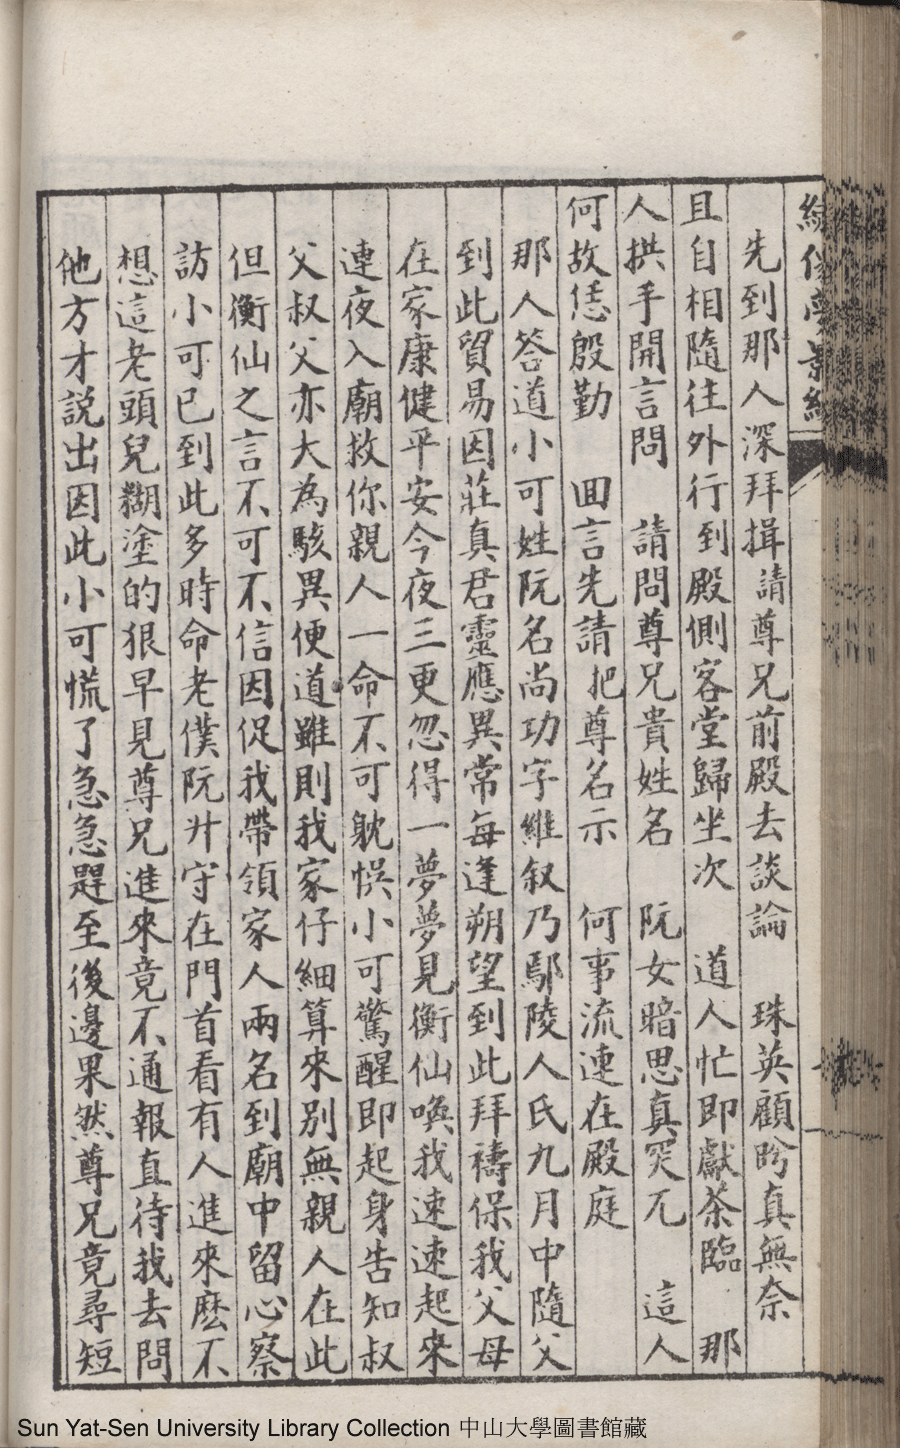 先到那人深拜揖請尊兄前殿去談論　珠英顧盻真無奈
且自相隨往外行到殿側客堂歸坐次　道人忙即獻茶臨　那
人拱手開言問　請問尊兄貴姓名　阮女暗思真突兀　這人
何故恁殷勤　囬言先請把尊名示　何事流連在殿庭
那人答道小可姓阮名尚功字維叙乃鄢陵人氏九月中隨父
到此貿易因莊真君靈應異常每逢朔望到此拜禱保我父母
在家康健平安今夜三更忽得一夢夢見衡仙喚我速速起來
連夜入廟救你親人一命不可躭悞小可驚醒即起身告知叔
父叔父亦大為駭異便道雖則我家仔細算來別無親人在此
但衡仙之言不可不信因促我帶領家人兩名到廟中留心察
訪小可已到此多時命老僕阮升守在門首看有人進來麽不
想這老頭兒糊塗的狠早見尊兄進來竟不通報直待我去問
他方才説出因此小可慌了急急趕至後邊果然尊兄竟尋短
Sun Yat-Sen University Library Collection 中山大學圖書館藏